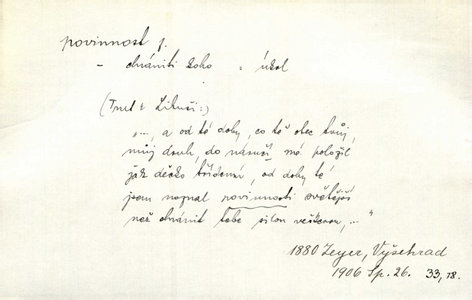 povinnost f.
– chrániti koho = úkol
(Trut k Libuši:)
"..., a od té doby, co tě otec tvůj,
můj druh, do náručí mé položil
jak děcko
, od doby té
jsem neznal povinnosti světější
než chránit tebe silou veškerou, ..."
1880 Zeyer, Vyšehrad
1906 Sp. 26. 33, 78.